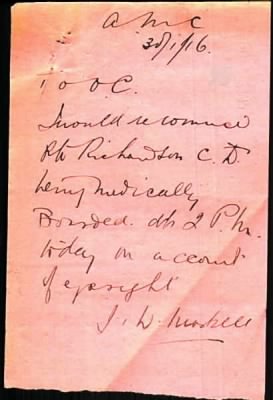 AMC
30/1/16.
to O.C.
I would recommend
Pte Richardson C. D.
being medically
Boarded. at 2 P.M.
today on account
of eyesight